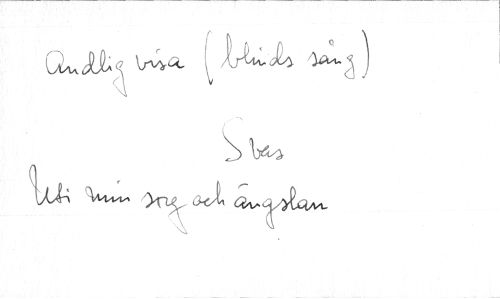 Andlig visa (blinds sång)
Svas
Uti min sorg och ängslan